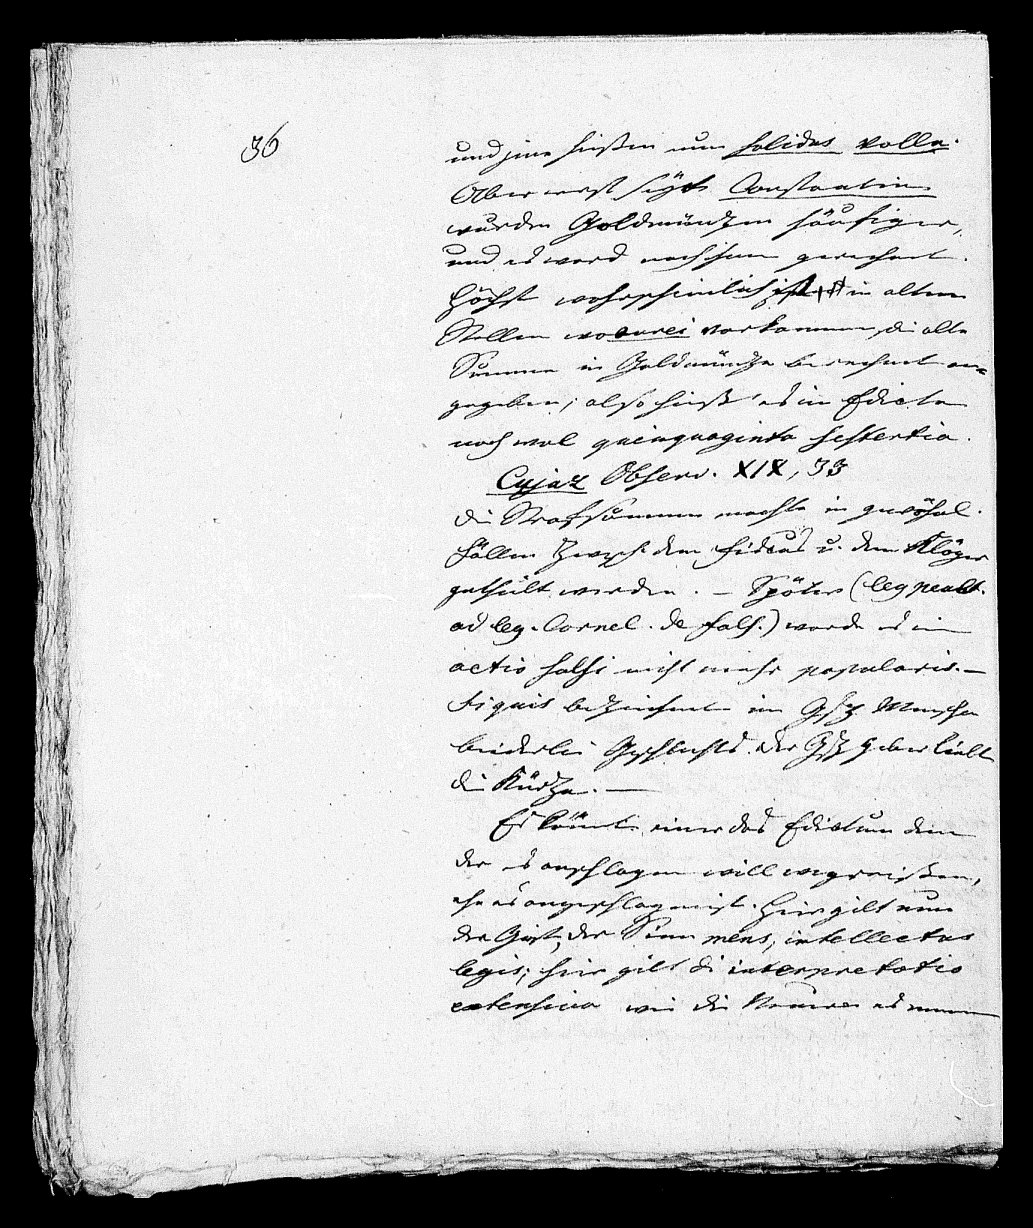 36
und jene hießen nun solidos volle.
Aber erst seyt Constantin
wurden Goldmünzen häufiger,
und es ward nach ihnen gerechnet.
Höchst wahrscheinlich ist in alten
Stellen wo aurei vorkommen, die alte
Summe in Goldmünze berechnet an-
gegeben; also hieß es im Edicte
noch wol quinquaginta sestertia.
Cujaz Observ. XIX, 33
die Strafsumme mußte in gewöhnl.
Fällen zwisch. dem Fiscus u. dem Kläger
getheilt werden. – Später (leg penult.
ad leg. Cornel. de fals.) wurde es ein
actio falsi nicht mehr popularis –
Siquis bezeichnet im Gsz Menschen
beiderlei Geschlechts. der Gszgeber liebt
die Kürze. —
Es könnte einer das Edictum dem
der es anschlagen will wegreißen,
ehe es angeschlagen ist. Hier gilt nun
der Geist, der Sinn mens, intellectus
legis; hier gilt die interpretatio
extensiva wie die es nennen